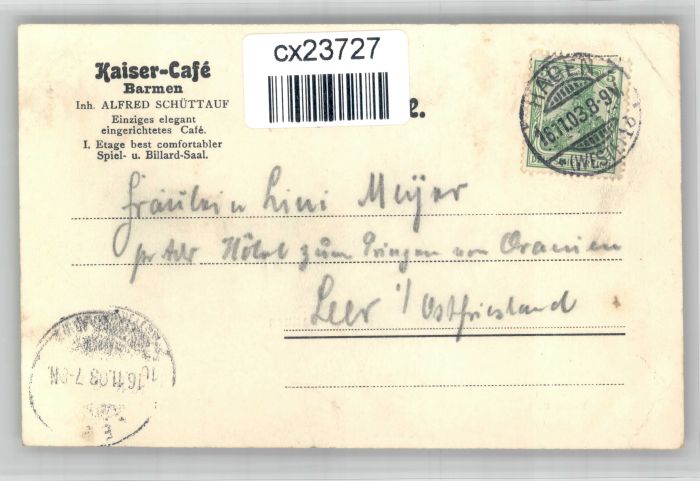 cx23727
Kaiser-Café
Barmen
Inh. ALFRED SCHÜTTAUF
Einziges elegant
eingerichtetes Café.
I. Etage best comfortabler
Spiel- u. Billard-Saal.
HAGEN
16.11.03.8-9N
(WESTF
5
Fräulein Lini Meyer
pr Adr Hôtel zum Prinzen von Oranien
Leer i/ Ostfriesland
16.11.03 7-8N